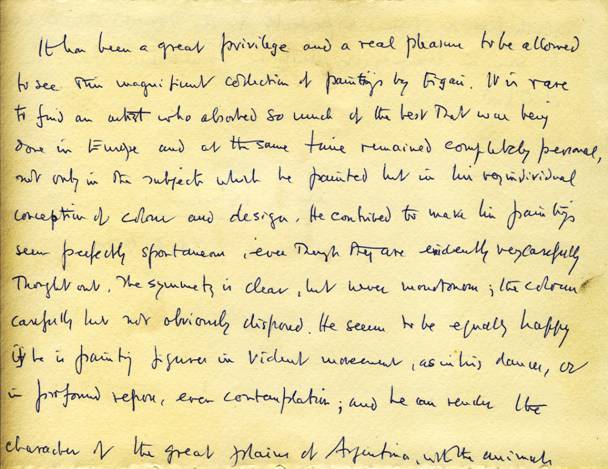 It has been a great privilege and a real pleasure to be allowed
to see this magnificent collection of paintings by Figari. It is rare
to find an artist who absorbed so much of the best that was being
done in Europe and at the same time remained completely personal,
not only in the subjects which he painted but in his very individual
conception of colour and design. He contrived to make his paintings
seem perfectly spontaneous, even though they are evidently very carefully
thought out. The symmetry is clear, but never monotonous; the colours
carefully but not obviously disposed. He seems to be equally happy
if he is painting figures in violent movement, as in his dances, or
in profound repose, even contemplation; and he can render the
character of the great plains of Argentina, with the animals